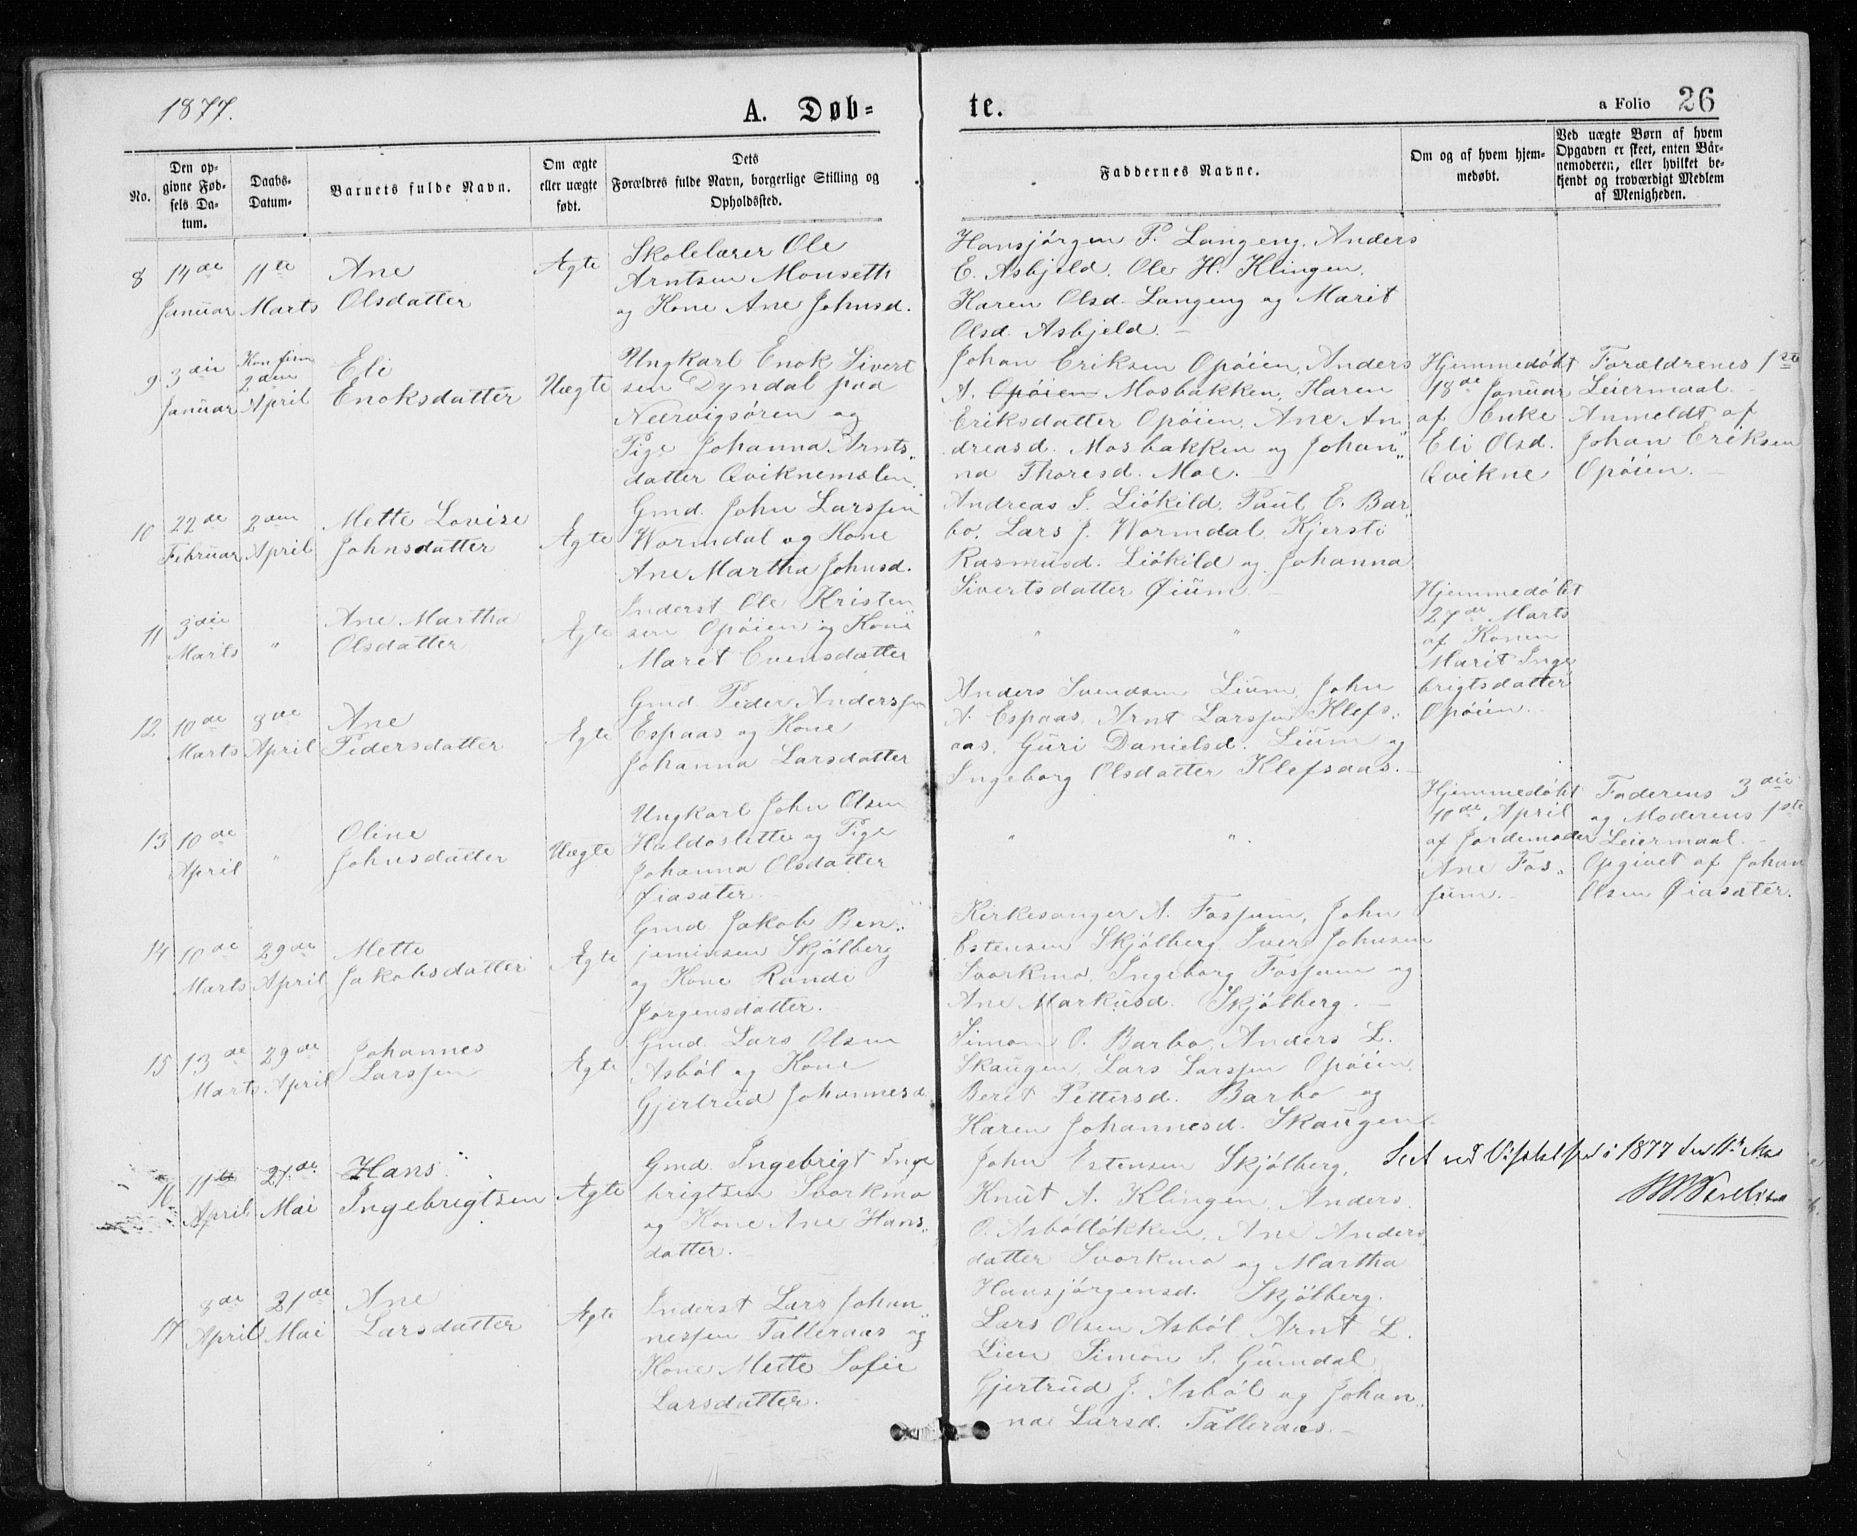 1877.
A. Døb=
te.
a Folio 26
No.
Den op-
givne Fød-
sels Da-
tum.
Daabs-
Datum.
Barnets fulde Navn.
Om ægte
eller uægte
født.
Dets
Forældres fulde Navn, borgerlige Stilling og
Opholdssted.
Faddernes Navne.
Om og af hvem hjem-
medøbt.
Ved uægte Børn af hvem
Opgaven er skeet, enten Bar-
nemoderen, eller hvilket be-
kjendt og troværdigt Medlem
af Menigheden.
8
14de
Januar
11te
Marts
Ane
Olsdatter
Ægte
Skolelærer Ole
Arntsen Monseth
og Kone Ane Johnsd.
Hansjørgen P. Langeng, Anders
E. Asbjeld, Ole H. Klingen,
Karen Olsd. Langeng og Marit
Olsd. Asbjeld.
9
3die
Januar
Konfirm
2den
April
Eli
Enoksdatter
Uægte
Ungkarl Enok Sivert
sen Dyndal paa
Nærvigsøren og
Pige Johanna Arnts„
datter Qviknemælen
Johan Eriksen Opøien, Anders
A. Opøien Mosbakken, Karen
Eriksdatter Opøien, Ane An
dreasd. Mosbakken og Johan„
na Thoresd. Moe.
Hjemmedøbt
18de Januar
af Enke
Eli Olsd.
Qvikne
Forældrenes 1ste
Leiermaal.
Anmeldt af
Johan Eriksen
Opøien.
10
22de
Februar
2den
April
Mette Lovise
Johnsdatter
Ægte
Gmd. John Larssen
Wormdal og Kone
Ane Martha Johnsd.
Andreas J. Liökild, Paul E. Bar„
bo, Lars J. Wormdal, Kjersti
Rasmusd. Liökild og Johanna
Sivertsdatter Øium.
11
3die
Marts
"
Ane Martha
Olsdatter
Ægte
Inderst Ole Kristen
sen Opøien og Kone
Maret Evensdatter
" "
Hjemmedøbt
27de Marts
af Konen
Marit Inge
brigtsdatter
Opøien.
12
10de
Marts
3de
April
Ane
Pedersdatter
Ægte
Gmd. Peder Anderssen
Espaas og Kone
Johanna Larsdatter
Anders Svendsen Lium, John
A. Espaas, Arnt Larssen Klefs„
aas, Guri Danielsd. Lium og
Ingeborg Olsdatter Klefsaas.
13
10de
April
"
Oline
Johnsdatter
Uægte
Ungkarl John Olsen
Haldoslette og Pige
Johanna Olsdatter
Øiasæter.
" "
Hjemmedøbt
10de April
af Jordemoder
Ane Fos„
sum.
Faderens 3die
og Moderens 1ste
Leiermaal.
Opgivet af Johan
Olsen Øiasæter.
14
10de
Marts
29de
April
Mette
Jakobsdatter
Ægte
Gmd Jakob Ben„
jaminsen Skjølberg
og Kone Randi
Jørgensdatter.
Kirkesanger A. Fossum, John
Estensen Skjølberg, Iver Johnsen
Svorkmo, Ingeborg Fossum og
Ane Markusd. Skjølberg.
15
13de
Marts
29de
April
Johannes
Larssen
Ægte
Gmd. Lars Olsen
Asbøl og Kone
Gjertrud Johannesd
Simon O. Barbo, Anders L.
Skaugen, Lars Larssen Opøien,
Beret Pettersd. Barbo og
Karen Johannesd. Skaugen.
16
11te
April
21de
Mai
Hans
Ingebrigtsen
Ægte
Gmd. Ingebrigt Inge
brigtsen Svorkmo
og Kone Ane Hans„
datter.
John Estensen Skjølberg,
Knut A. Klingen, Anders
O. Asbølløkken, Ane Anders
datter Svorkmo og Martha
Hansjørgensd. Skjølberg.
Seet ved i 1877
17
8de
April
21de
Mai
Ane
Larsdatter
Ægte
Inderst Lars Johan„
nessen Talleraas og
Kone Mette Sofie
Larsdatter.
Lars Olsen Asbøl, Arnt L.
Lien, Simon S. Gumdal
Gjertrud J. Asbøl og Johan„
na Larsd. Talleraas.